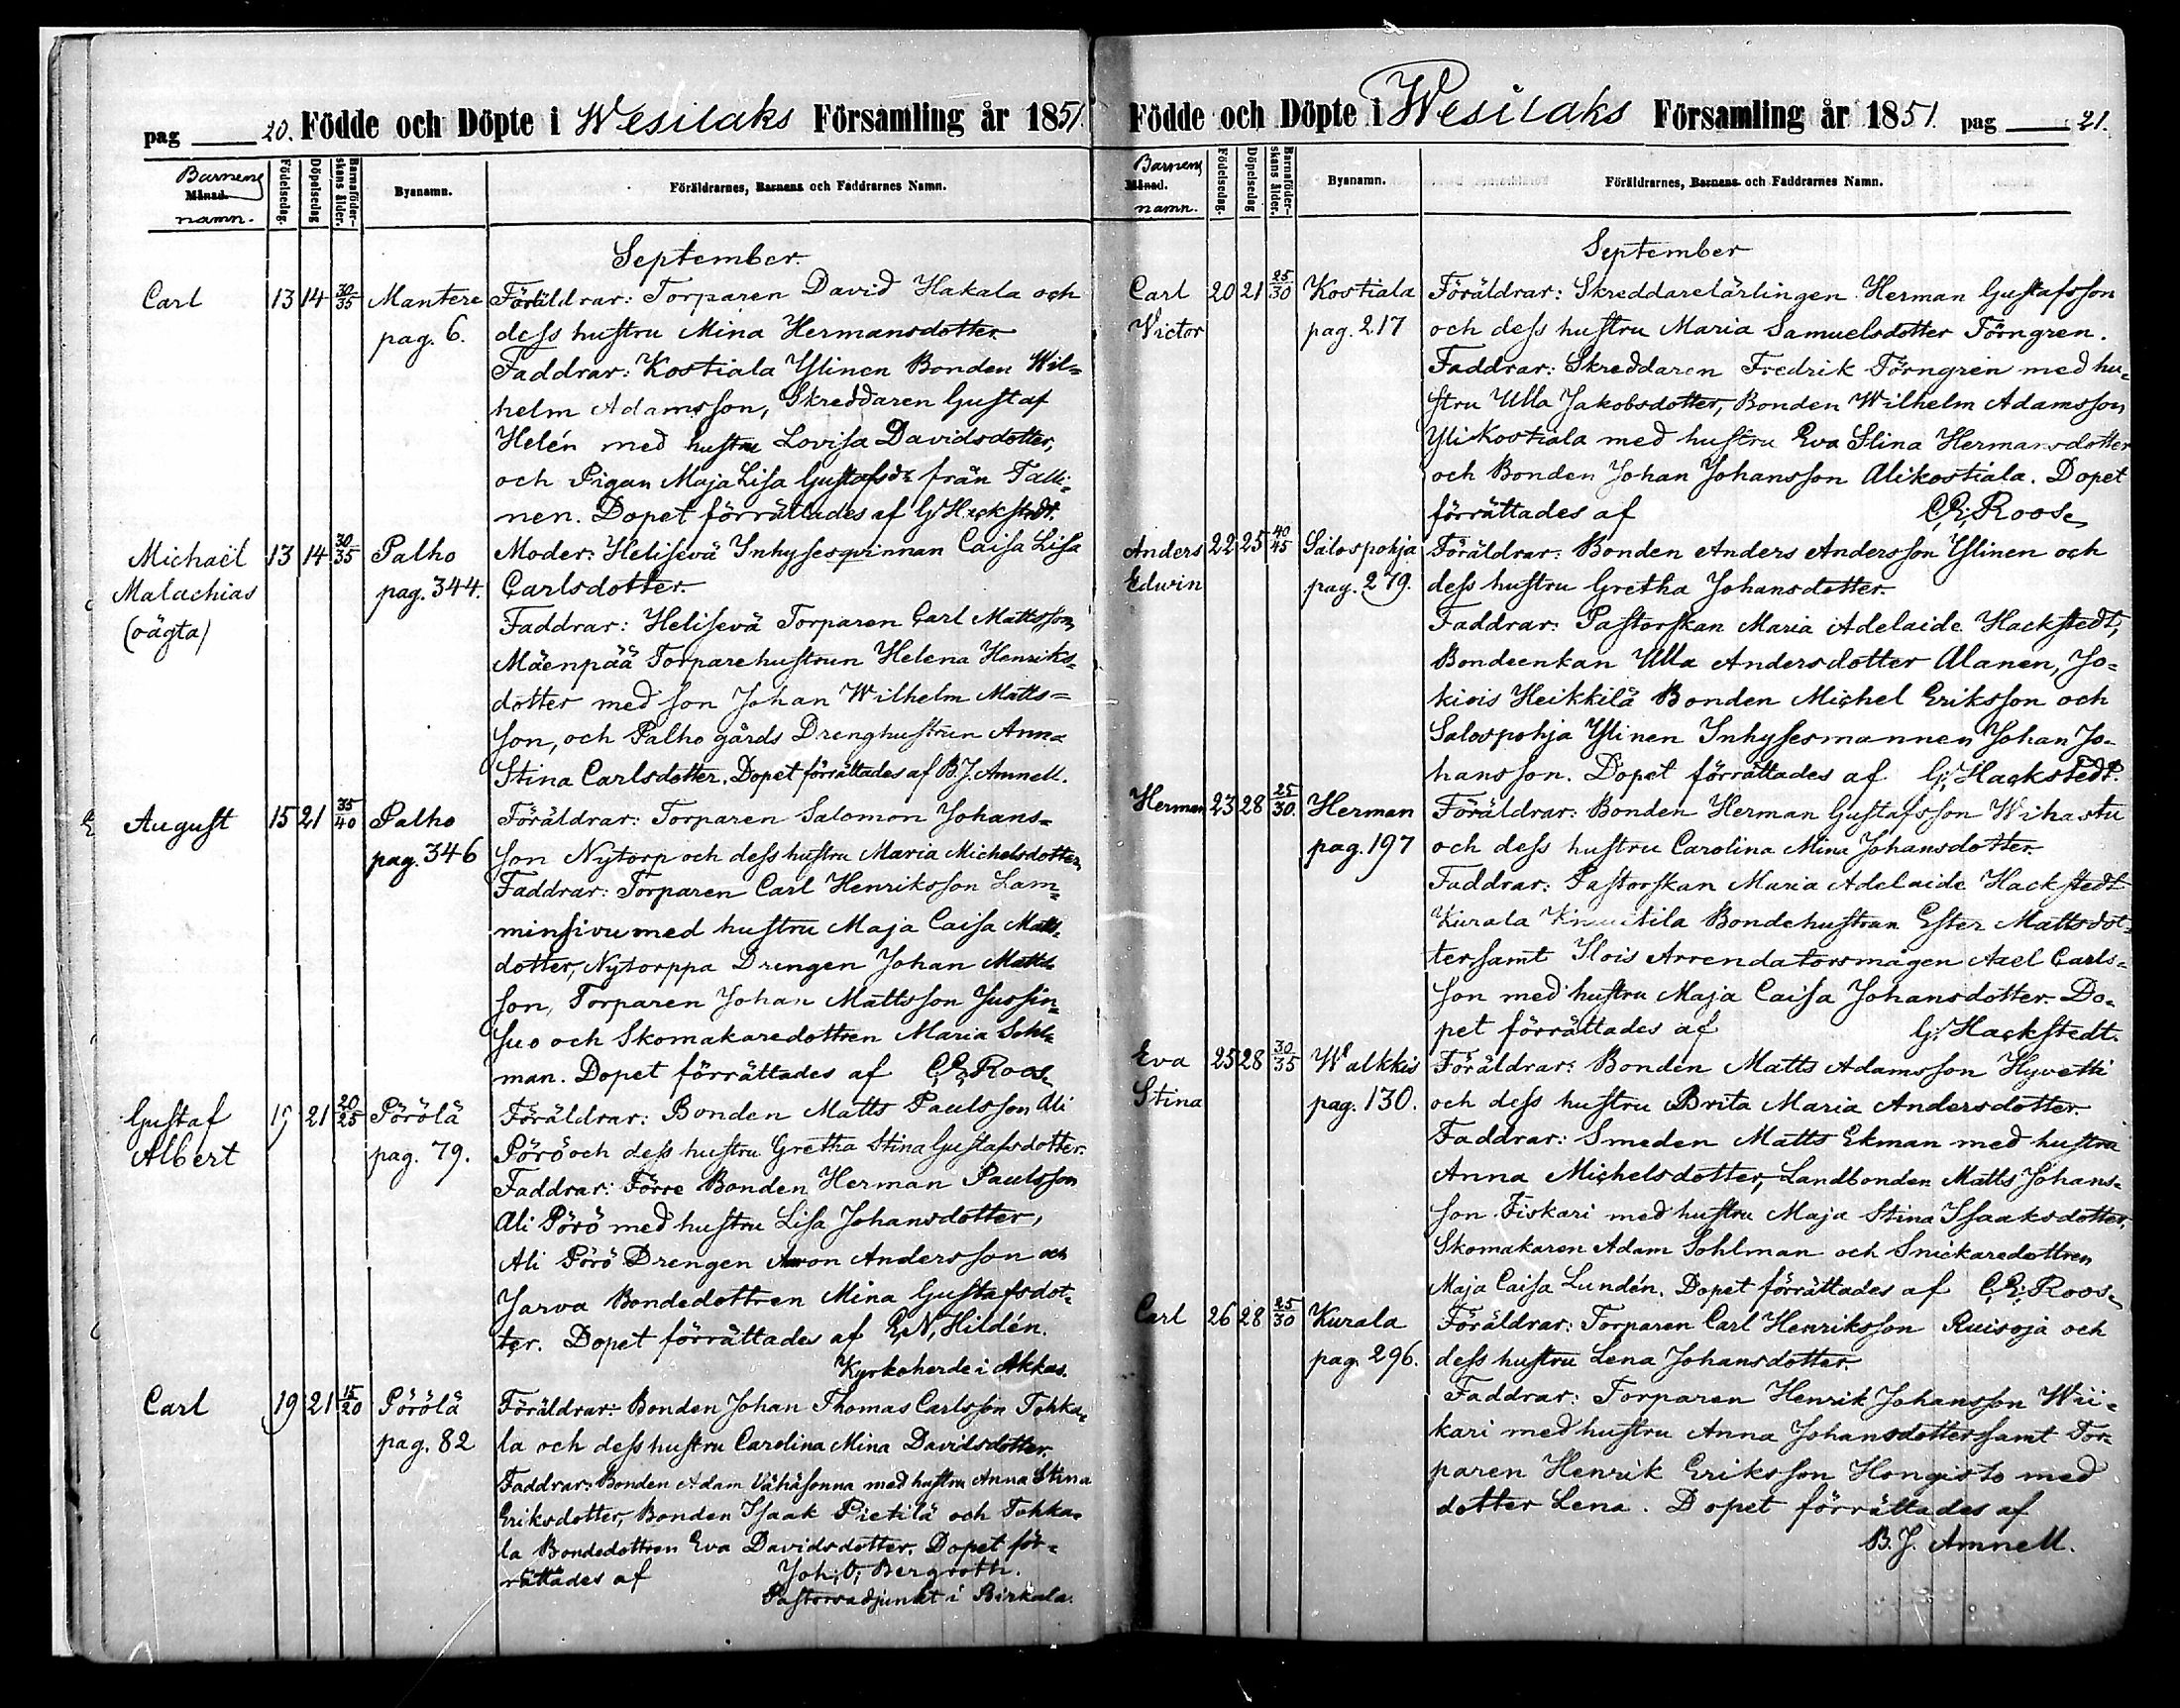 pag 20. Födde och Döpte i Wesilaks Församling år 1851.
Barnens Månad. namn.
Födelsedag.
Döpelsedag
Barnaföderskans ålder.
Byanamn.
Föräldrarnes, Barnens och Faddrarnes Namn.
September.
Carl 13 14 30/35 Mantere Föräldrar: Torparen David Hakala och
pag. 6. dess hustru Mina Hermansdotter.
Faddrar: Kostiala Ylinen Bonden Wil=
helm Adamsson, Skreddaren Gustaf
Helén med hustru Lovisa Davidsdotter,
och Pigan Maja Lisa Gustafsdr från Talli=
nen. Dopet förrättades af G. Hackstedt.
Michaël 13 14 30/35 Palho Moder: Helisevä Inhysesqvinnan Caisa Lisa
Malachias pag. 344. Carlsdotter.
(oägta) Faddrar: Helisevä Torparen Carl Mattsson,
Mäenpää Torparehustrun Helena Henriks=
dotter med son Johan Wilhelm Matts=
son, och Palho gårds Drenghustrun Anna
Stina Carlsdotter. Dopet förrättades af B. J. Amnell.
August 15 21 35/40 Palho Föräldrar: Torparen Salomon Johans=
pag. 346 son Nytorp och dess hustru Maria Michelsdotter,
Faddrar: Torparen Carl Henriksson Lam=
minsivu med hustru Maja Caisa Matts=
dotter, Nytorppa Drengen Johan Matts=
son, Torparen Johan Mattsson Jussin=
suo och Skomakaredottren Maria Sohl=
man. Dopet förrättades af C. E. Roos.
Gustaf 21 20/25 Pörölä Föräldrar: Bonden Matts Paulsson Ali
Albert pag. 79. Pörö och dess hustru Gretha Stina Gustafsdotter.
Faddrar: Förre Bonden Herman Paulsson
Ali Pörö med hustru Lisa Johansdotter,
Ali Pörö Drengen Aron Andersson och
Jarva Bondedottren Mina Gustafsdot=
ter. Dopet förrättades af E. N. Hildén.
Kyrkoherde i Akkas.
Carl 19 21 15/20 Pörölä Föräldrar: Bonden Johan Thomas Carlsson Tohka=
pag. 82 la och dess hustru Carolina Mina Davidsdotter.
Faddrar: Bonden Adam Vähäsonna med hustru Anna Stina
Eriksdotter, Bonden Isaak Pietilä och Tohka=
la Bondedottren Eva Davidsdotter. Dopet för=
rättades af Joh. O. Bergroth.
Pastorsadjunkt i Birkala.
Födde och Döpte i Wesilaks Församling år 1851. pag 21.
Barnens Månad. namn.
Födelsedag.
Döpelsedag
Barnaföderskans ålder.
Byanamn.
Föräldrarnes, Barnens och Faddrarnes Namn.
September
Carl 20 21 25/30 Kostiala Föräldrar: Skreddarelärlingen Herman Gustafsson
Victor pag. 217 och dess hustru Maria Samuelsdotter Törngren.
Faddrar: Skreddaren Fredrik Törngren med hu=
stru Ulla Jakobsdotter, Bonden Wilhelm Adamsson
Yli Kostiala med hustru Eva Stina Hermansdotter
och Bonden Johan Johansson Alikostiala. Dopet
förrättades af C. E. Roos.
Anders 22 25 40/45 Salospohja Föräldrar: Bonden Anders Andersson Ylinen och
Edwin pag. 279. dess hustru Gretha Johansdotter.
Faddrar: Pastorskan Maria Adelaide Hackstedt,
Bondeenkan Ulla Andersdotter Alanen, Jo=
kiois Heikkilä Bonden Michel Eriksson och
Salospohja Ylinen Inhysesmannen Johan Jo=
hansson. Dopet förrättades af G. Hackstedt.
Herman 23 28 25/30. Herman Föräldrar: Bonden Herman Gustafsson Wihastu
pag. 197 och dess hustru Carolina Mina Johansdotter.
Faddrar: Pastorskan Maria Adelaide Hackstedt
Kurala Bondehustrun Ester Mattsdot=
ter samt Ilois Arrendatorsmågen Axel Carls=
son med hustru Maja Caisa Johansdotter. Do=
pet förrättades af G. Hackstedt.
Eva 25 28 30/35 Walkkis Föräldrar: Bonden Matts Adamsson Hyvetti
Stina pag. 130. och dess hustru Brita Maria Andersdotter.
Faddrar: Smeden Matts Ekman med hustru
Anna Michelsdotter, Landbonden Matts Johans=
son Fiskari med hustru Maja Stina Isaaksdotter,
Skomakaren Adam Sohlman och Snickaredottren
Maja Caisa Lundén. Dopet förrättades af C. E. Roos.
Carl 26 28 25/30 Kurala Föräldrar: Torparen Carl Henriksson Ruisoja och
pag. 296. dess hustru Lena Johansdotter.
Faddrar: Torparen Henrik Johansson Wii=
kari med hustru Anna Johansdotter samt Tor=
paren Henrik Eriksson Hongisto med
dotter Lena. Dopet förrättades af
B. J. Amnell.